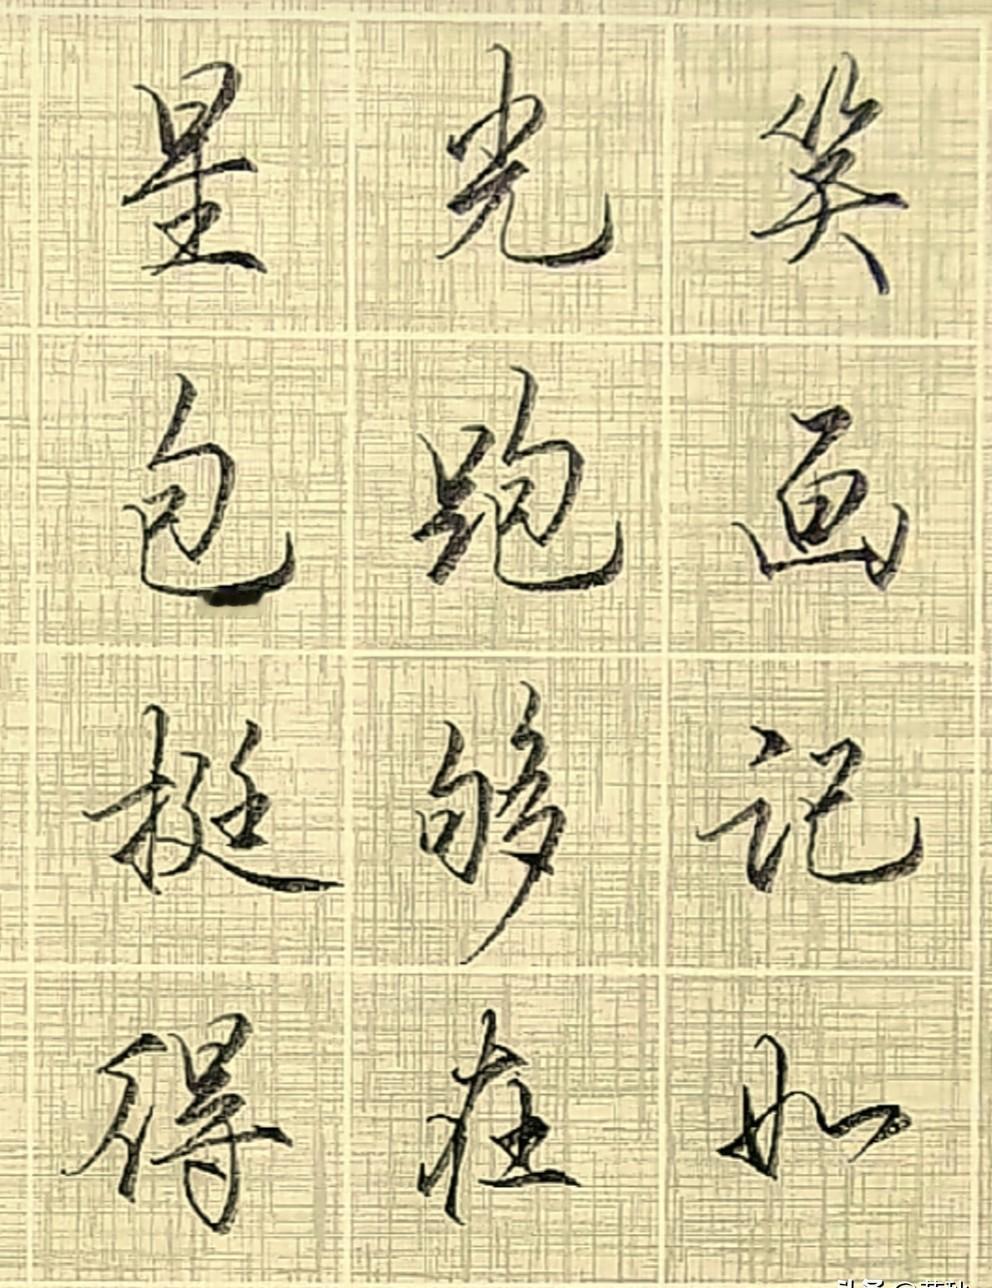 星光笑
包跑画
挺够记
得在如